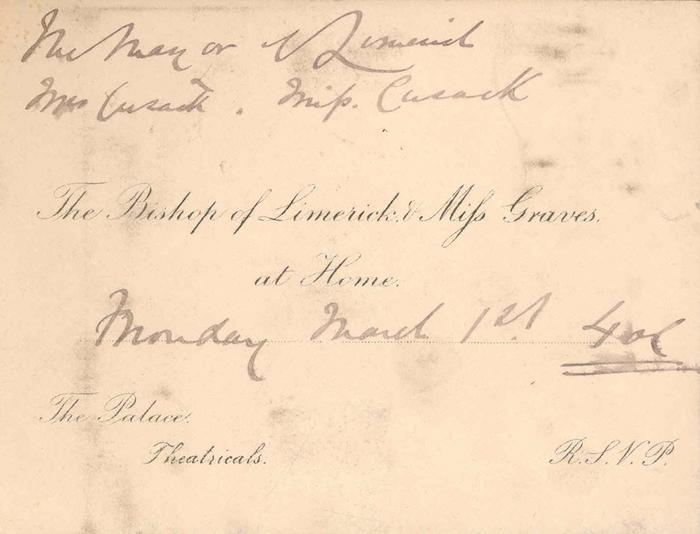 The Mayor of Limerick
Mrs Cusack. Miss. Cusack
The Bishop of Limerick, & Miss Graves.
at Home.
Monday March 1st
The Palace.
Theatricals. R.S.V.P.